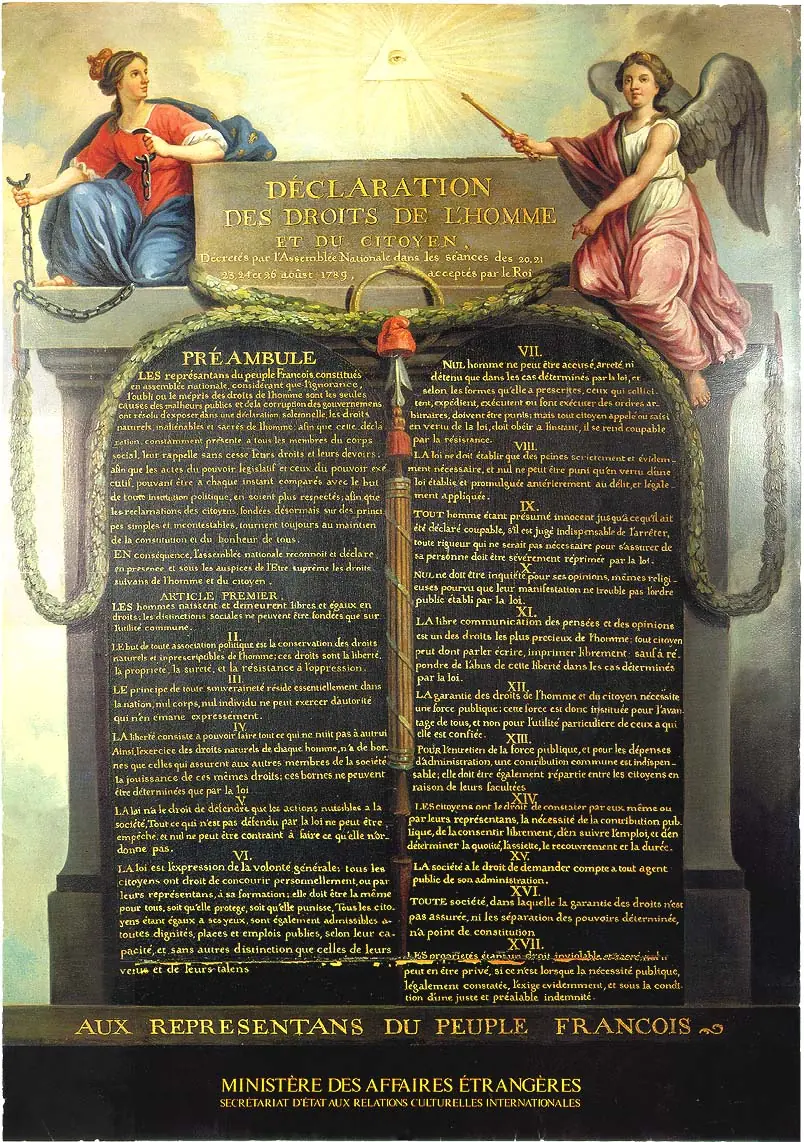 DÉCLARATION
DES DROITS DE L'HOMME
ET DU CITOYEN,
Décrétés par l'Assemblée Nationale dans les séances des 20, 21
23, 24 et 26 aoûst 1789, acceptés par le Roi
PRÉAMBULE
LES représantans du peuple François, constitués
en assemblée nationale, considérant que l'ignorance,
l'oubli ou le mépris des droits de l'homme sont les seules
causes des malheurs publics et de la corruption des gouvernemens
ont résolu d'exposer dans une déclaration solemnelle, les droits
naturels, inaliénables et sacrés de l'homme; afin que cette décla
ration, constamment présente a tous les membres du corps
social, leur rappelle sans cesse leurs droits et leurs devoirs;
afin que les actes du pouvoir législatif et ceux du pouvoir exé
cutif, pouvant être a chaque instant comparés avec le but
de toute institution politique, en soient plus respectés; afin que
les reclamations des citoyens, fondées désormais sur des princi
pes simples et incontestables, tournent toujours au maintien
de la constitution et du bonheur de tous.
EN conséquence, l'assemblée nationale reconnoit et déclare
en presence et sous les auspices de l'Etre suprême les droits
suivans de l'homme et du citoyen.
ARTICLE PREMIER.
LES hommes naissent et demeurent libres et égaux en
droits; les distinctions sociales ne peuvent être fondées que sur
l'utilité commune.
II.
LE but de toute association politique est la conservation des droits
naturels et inprescriptibles de l'homme; ces droits sont la liberté,
la propriete, la sureté, et la résistance à l'oppression.
III.
LE principe de toute souveraineté réside essentiellement dans
la nation, nul corps, nul individu ne peut exercer d'autorité
qui n'en émane expressement.
IV.
LA liberté consiste a pouvoir faire tout ce qui ne nuit pas a autrui
Ainsi, l'exercice des droits naturels de chaque homme, n'a de bor-
nes que celles qui assurent aux autres membres de la société
la jouissance de ces mêmes droits; ces bornes ne peuvent
être déterminées que par la loi
V.
LA loi n'a le droit de défendre que les actions nuisibles a la
société. Tout ce qui n'est pas défendu par la loi ne peut être
empêche, et nul ne peut être contraint à faire ce qu'elle n'or-
donne pas.
VI.
LA loi est l'expression de la volonté générale; tous les
citoyens ont droit de concourir personnellement, ou par
leurs représentans, à sa formation; elle doit être la même
pour tous, soit qu'elle protege, soit qu'elle punisse. Tous les cito-
yens étant égaux a ses yeux, sont également admissibles a
toutes dignités, places et emplois publics, selon leur ca-
pacité, et sans autres distinction que celles de leurs
vertus et de leurs talens
VII.
NUL homme ne peut être accusé, arreté ni
détenu que dans les cas déterminés par la loi, et
selon les formes qu'elle a prescrites, ceux qui sollici-
tent, expédient, exécutent ou font exécuter des ordres ar-
bitraires, doivent être punis; mais tout citoyen appelé ou saisi
en vertu de la loi, doit obéir a l'instant, il se rend coupable
par la résistance.
VIII.
LA loi ne doit établir que des peines strictement et évidem-
ment nécessaire, et nul ne peut être puni qu'en vertu d'une
loi établie et promulguée antérierement au délit, et légale-
ment appliquée.
IX.
TOUT homme étant présumé innocent jusqu'à ce qu'il ait
été déclaré coupable, s'il est jugé indispensable de l'arrêter,
toute rigueur qui ne serait pas nécessaire pour s'assurer de
sa personne doit être sévèrement réprimée par la loi.
X.
NUL ne doit être inquiété pour ses opinions, mêmes religi-
euses pourvu que leur manifestation ne trouble pas l'ordre
public établi par la loi.
XI.
LA libre communication des pensées et des opinions
est un des droits les plus precieux de l'homme; tout citoyen
peut donc parler écrire, imprimer librement; sauf à ré-
pondre de l'abus de cette liberté dans les cas déterminés
par la loi.
XII.
LA garantie des droits de l'homme et du citoyen nécessite
une force publique; cette force est donc instituée pour l'avan-
tage de tous, et non pour l'utilité particuliere de ceux a qui
elle est confiée.
XIII.
POUR l'entretien de la force publique, et pour les dépenses
d'administration, une contribution commune est indispen-
sable; elle doit être également répartie entre les citoyens en
raison de leurs facultées
XIV.
LES citoyens ont le droit de constater par eux même ou
par leurs représentans, la nécessité de la contribution pub-
lique, de la consentir librement, d'en suivre l'emploi, et d'en
déterminer la quotité, l'assiette, le recouvrement et la durée.
XV.
LA société a le droit de demander compte a tout agent
public de son administration.
XVI.
TOUTE société, dans laquelle la garantie des droits n'est
pas assurée, ni les séparation des pouvoirs déterminée,
n'a point de constitution
XVII.
LES proprietés étant un droit inviolable et sacré, nul ne
peut en être privé, si ce n'est lorsque la nécessité publique,
légalement constatée, l'exige evidemment, et sous la condi-
tion d'une juste et préalable indemnité.
AUX REPRESENTANS DU PEUPLE FRANCOIS
MINISTÈRE DES AFFAIRES ÉTRANGÈRES
SECRÉTARIAT D'ÉTAT AUX RELATIONS CULTURELLES INTERNATIONALES